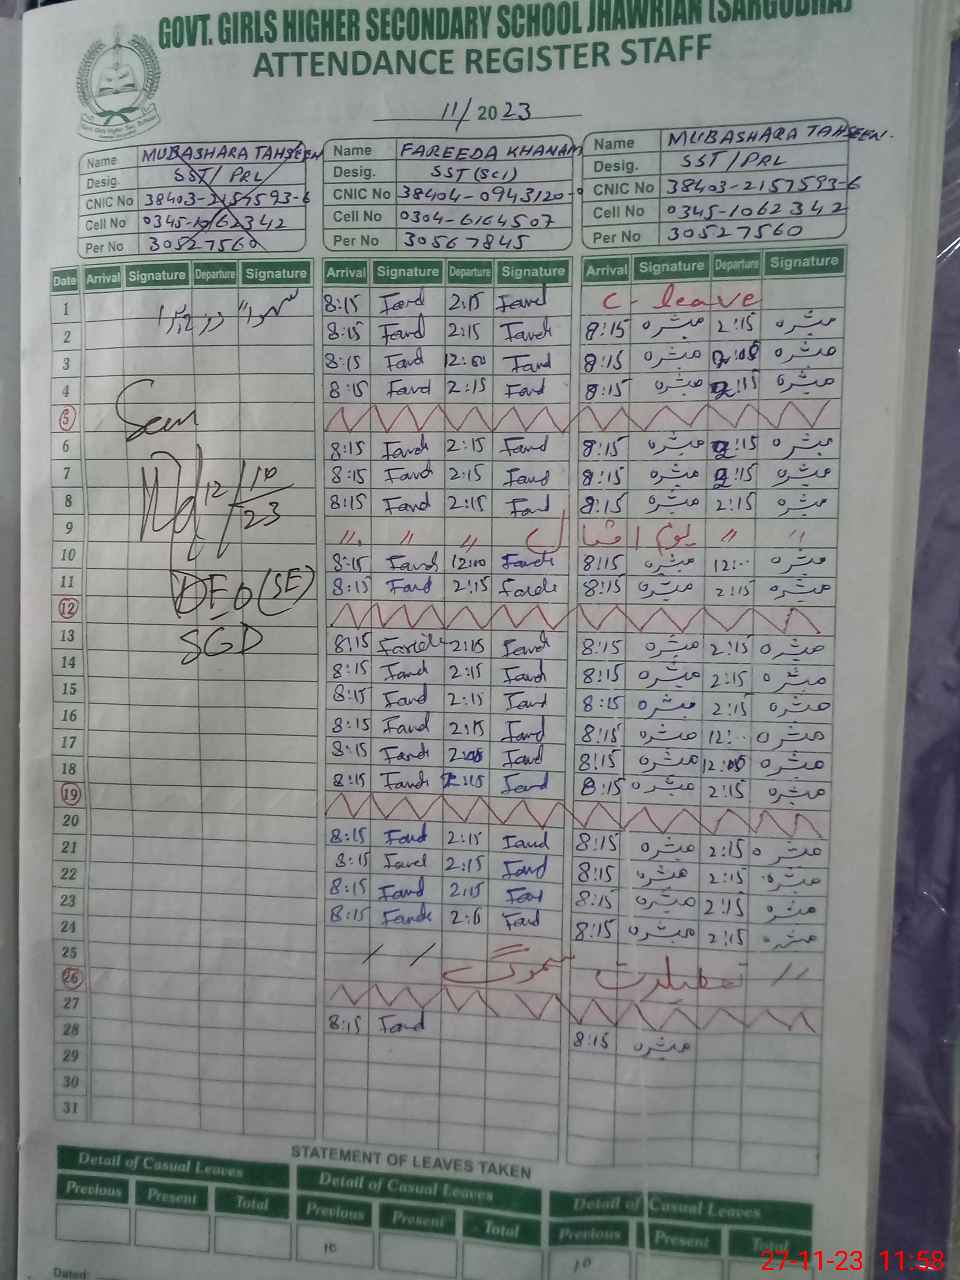 GOVT. GIRLS HIGHER SECONDARY SCHOOL JHAWRIAN (SARGODHA)
ATTENDANCE REGISTER STAFF
11/2023
Name MUBASHARA TAHSEEN Name FAREEDA KHANAM Name MUBASHARA TAHSEEN.
Desig. SST/PRL Desig. SST(SCI) Desig. SST/PRL
CNIC No 38403-2157593-6 CNIC No 38404-0943120- CNIC No 38403-2157593-6
Cell No 0345-1062342 Cell No 0304-6164507 Cell No 0345-1062342
Per No 30527560 Per No 30567845 Per No 30527560
Date Arrival Signature Departure Signature Arrival Signature Departure Signature Arrival Signature Departure Signature
1 8:15 Fard 2:15 Fard C- leave
2 8:15 Fard 2:15 Fard 8:15 مبشرہ 2:15 مبشرہ
3 8:15 Fard 12:00 Fard 8:15 مبشرہ مبشرہ
4 8:15 Fard 2:15 Fard 8:15 مبشرہ 2:15 مبشرہ
5
Seen
6 8:15 Fard 2:15 Fard 8:15 مبشرہ 2:15 مبشرہ
7 8:15 Fard 2:15 Fard 8:15 مبشرہ 2:15 مبشرہ
8 8:15 Fard 2:15 Fard 8:15 مبشرہ 2:15 مبشرہ
12/10/23
9 〃 〃 〃 یوم اقبال 〃 〃
10 8:15 Fard 12:00 Fard 8:15 مبشرہ 12:.. مبشرہ
11 8:15 Fard 2:15 Fard 8:15 مبشرہ 2:15 مبشرہ
DEO(SE)
12
SGD
13 8:15 Fard 2:15 Fard 8:15 مبشرہ 2:15 مبشرہ
14 8:15 Fard 2:15 Fard 8:15 مبشرہ 2:15 مبشرہ
15 8:15 Fard 2:15 Fard 8:15 مبشرہ 2:15 مبشرہ
16 8:15 Fard 2:15 Fard 8:15 مبشرہ 12:.. مبشرہ
17 8:15 Fard Fard 8:15 مبشرہ مبشرہ
18 8:15 Fard 2:15 Fard 8:15 مبشرہ 2:15 مبشرہ
19
20 8:15 Fard 2:15 Fard 8:15 مبشرہ 2:15 مبشرہ
21 8:15 Fard 2:15 Fard 8:15 مبشرہ 2:15 مبشرہ
22 8:15 Fard 2:15 Fard 8:15 مبشرہ 2:15 مبشرہ
23 8:15 Fard Fard 8:15 مبشرہ 2:15 مبشرہ
24
25 / / تعطیلات سموگ //
26
27 8:15 Fard 8:15 مبشرہ
28
29
30
31
STATEMENT OF LEAVES TAKEN
Detail of Casual Leaves Detail of Casual Leaves Detail of Casual Leaves
Previous Present Total Previous Present Total Previous Present Total
10 10
Dated:
27-11-23 11:58